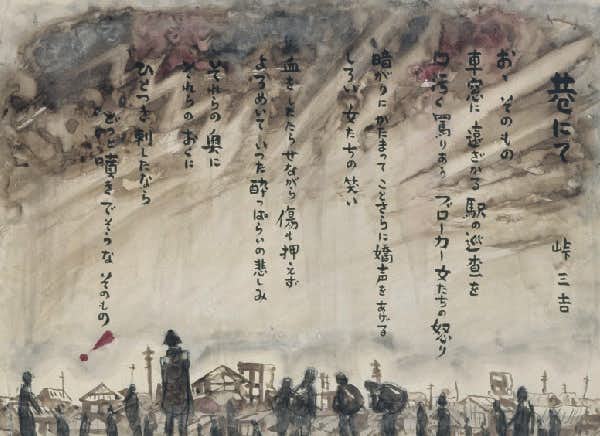 巷にて
峠 三吉
おゝ そのもの
車窓に遠ざかる駅の巡査を
口汚く罵りあう ブローカー女たちの怒り
暗がりにかたまって ことさらに嬌声をあげる
しろい女たちの笑い
血をしたたらせながら 傷も押えず
よろめいていつた酔つぱらいの悲しみ
それらの奥に
それらのおくに
ひとつき刺したなら
どつと噴きでそうな そのもの!